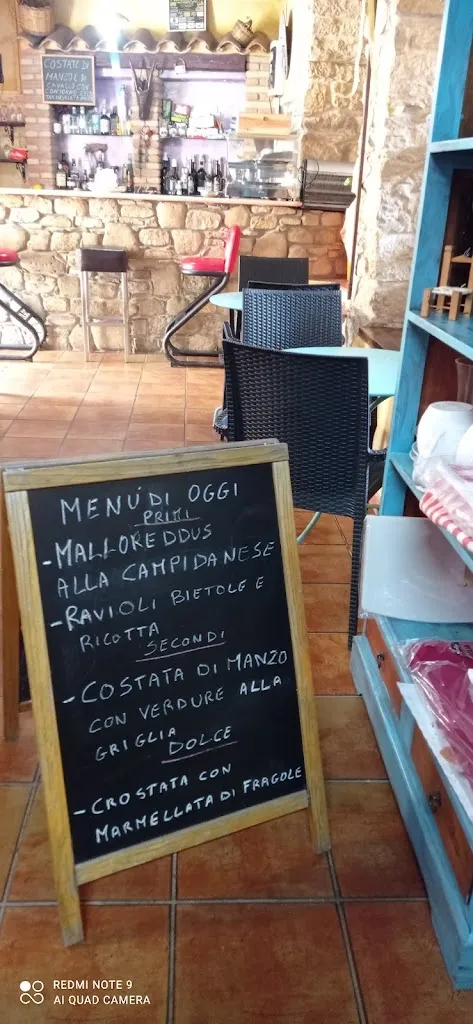 COSTATE DI
MANZO E DI
CAVALLO CON
MENÚ DI OGGI
PRIMI
-MALLOREDDUS
ALLA CAMPIDANESE
-RAVIOLI BIETOLE E
RICOTTA
SECONDI
-COSTATA DI MANZO
CON VERDURE ALLA
GRIGLIA
DOLCE
-CROSTATA CON
MARMELLATA DI FRAGOLE
REDMI NOTE 9
AI QUAD CAMERA